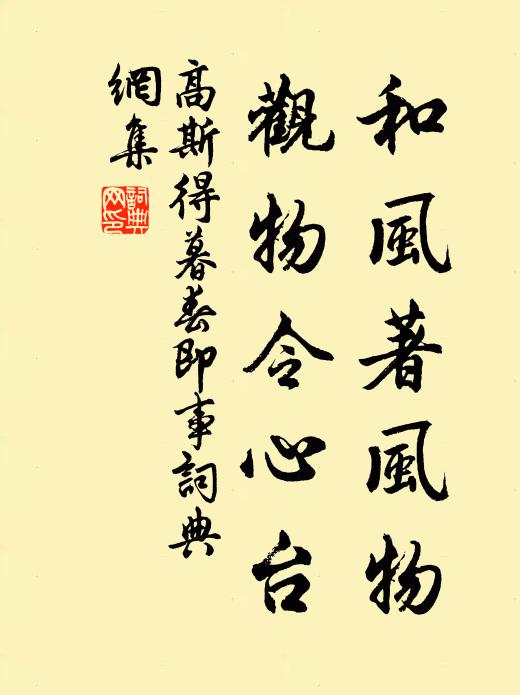 和風著風物
觀物令心台
高斯得暮春即事詞典
網集
詞典
网印